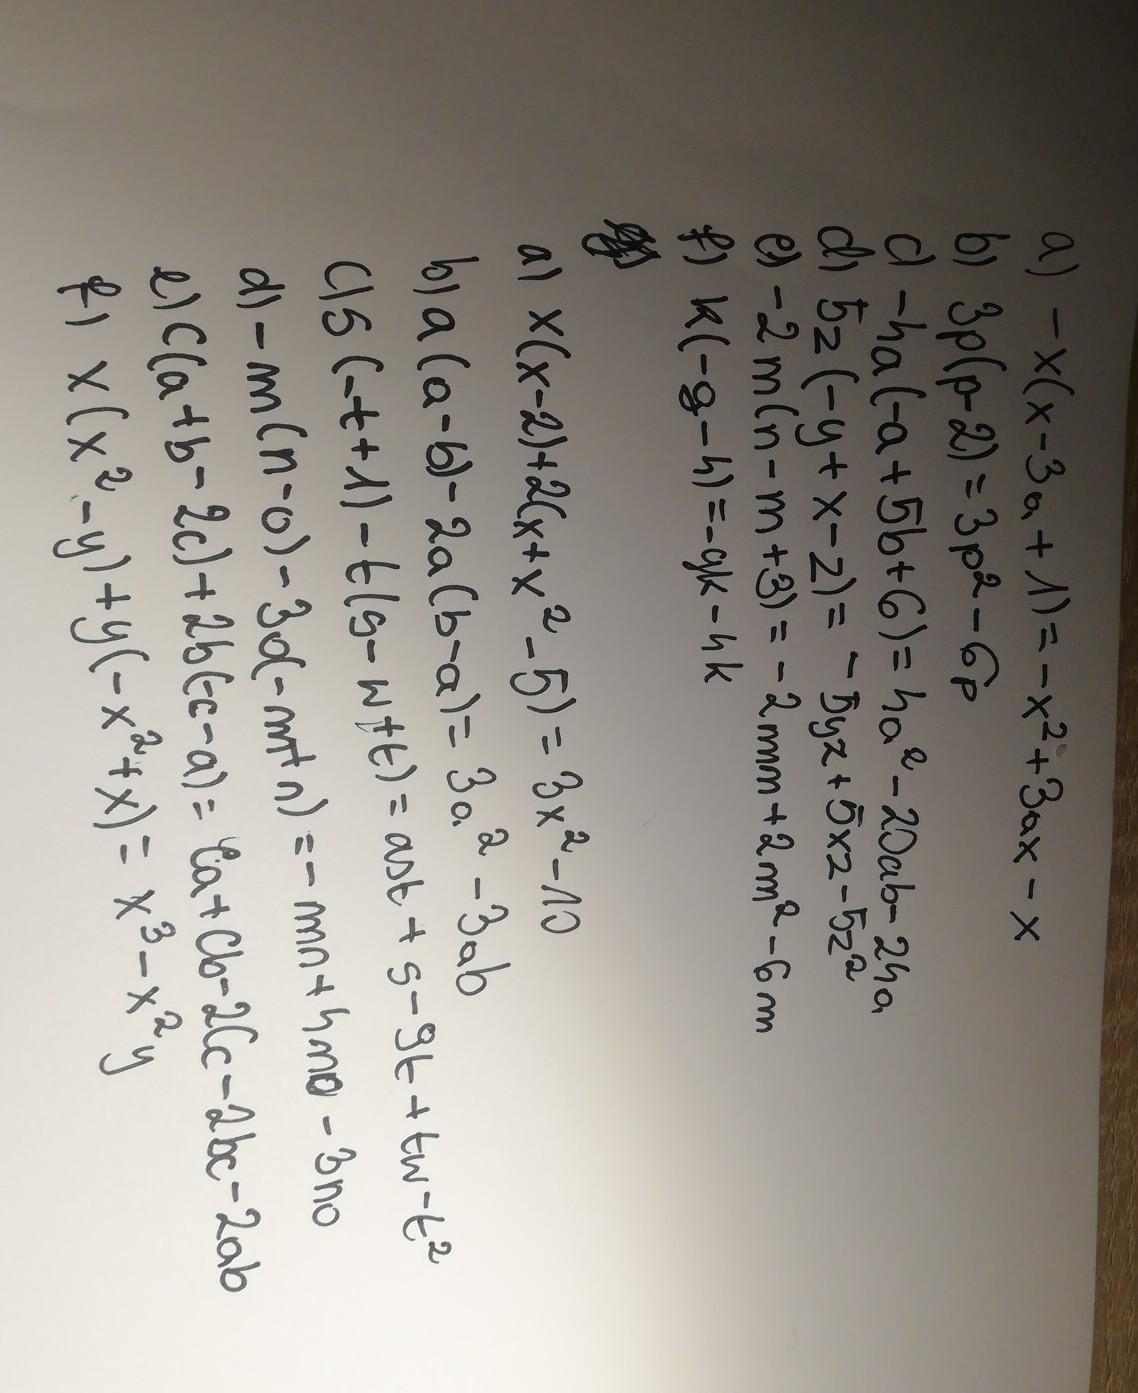 a) -x(x-3a+1)=-x²+3ax-x
b) 3p(p-2)=3p²-6p
c) -4a(-a+5b+6)=4a²-20ab-24a
d) 5z(-y+x-z)=-5yz+5xz-5z²
e) -2m(n-m+3)=-2mn+2m²-6m
f) k(-g-h)=-gk-hk
a) x(x-2)+2(x+x²-5)=3x²-10
b) a(a-b)-2a(b-a)=3a²-3ab
c) s(-t+1)-t(s-w+t)=ast+s-gt+tw-t²
d) -m(n-o)-3o(-m+n)=-mn+4mo-3no
e) c(a+b-2c)+2b(-c-a)=ca+cb-2cc-2bc-2ab
f) x(x²-y)+y(-x²+x)=x³-x²y